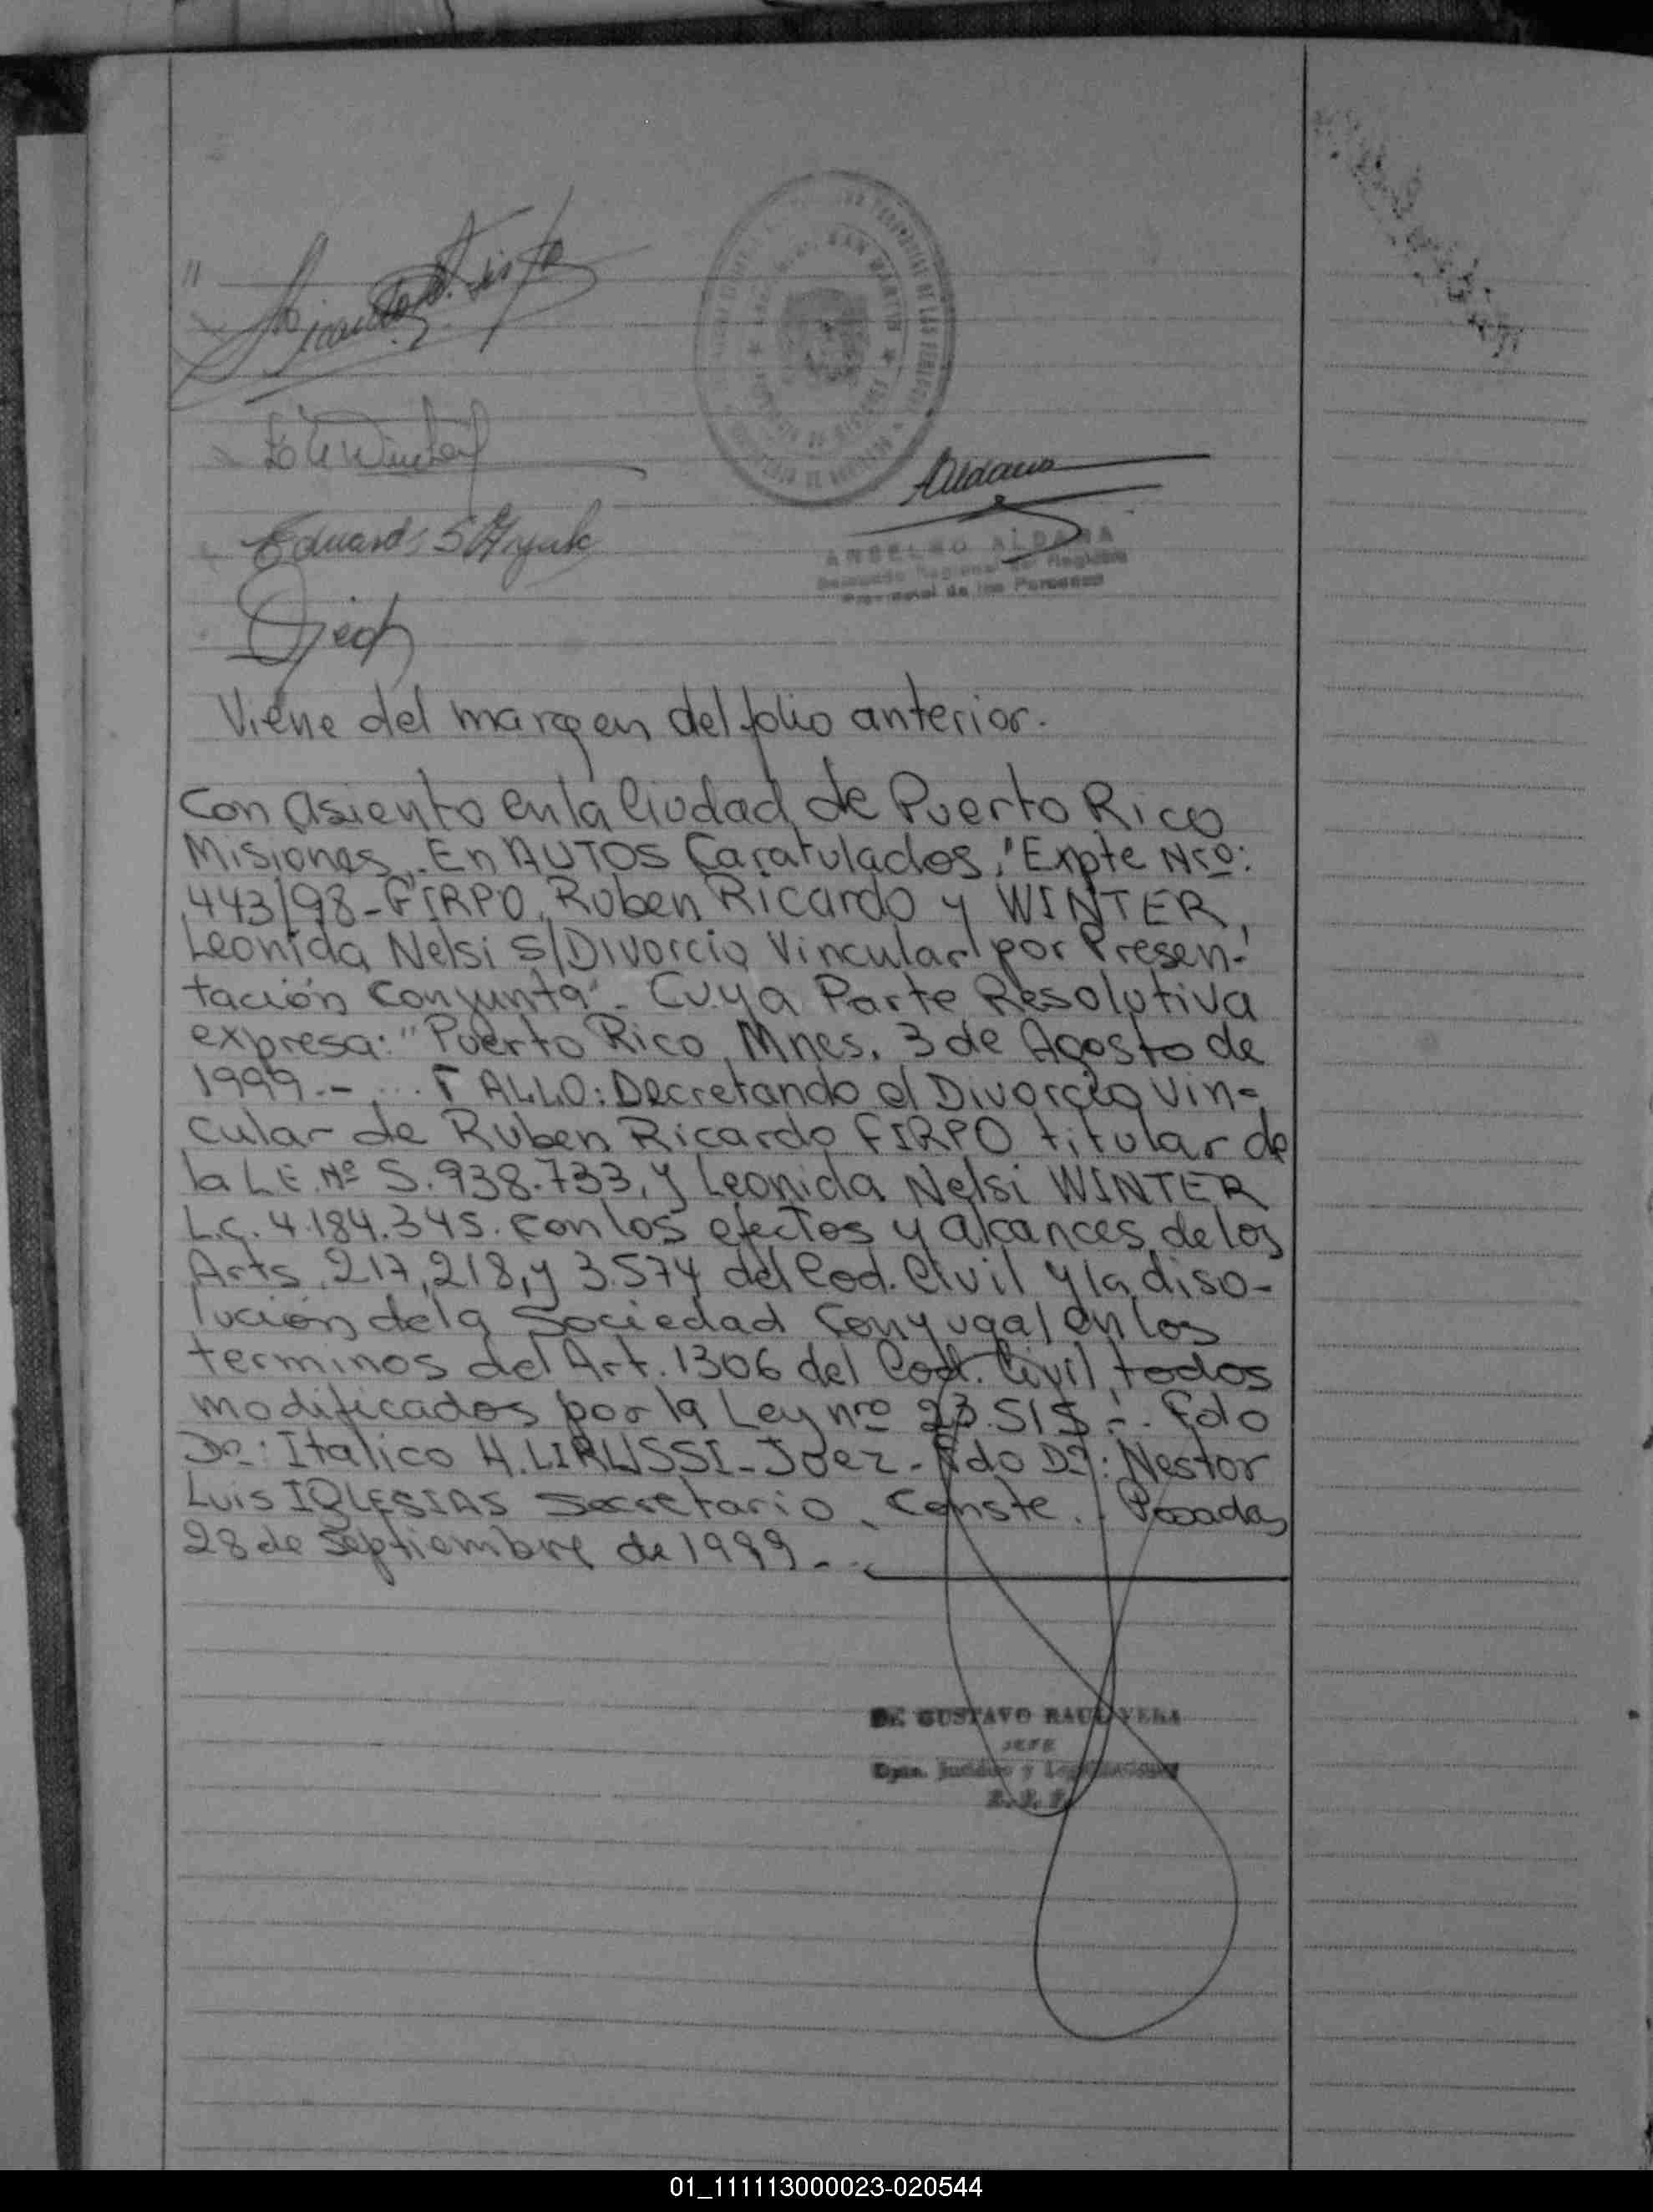 "
Eduardo S
Aldana
ANSELMO ALDANA
Delegado Regional del Registro
Provincial de las Personas
SAN MARTIN
Viene del margen del folio anterior.
Con asiento en la Ciudad de Puerto Rico
Misiones. En AUTOS Caratulados, "Expte Nro:
443/98-FIRPO, Ruben Ricardo y WINTER,
Leonida Nelsi s/Divorcio Vincular por Presen-
tación Conjunta". Cuya Parte Resolutiva
expresa: "Puerto Rico, Mnes. 3 de Agosto de
1999.- ... FALLO: Decretando el Divorcio Vin-
cular de Ruben Ricardo FIRPO titular de
la L.E. Nº 5.938.733, y Leonida Nelsi WINTER
L.C. 4.184.345. con los efectos y alcances de los
Arts. 217, 218, y 3.574 del Cod. Civil y la diso-
lución de la Sociedad Conyugal en los
terminos del Art. 1306 del Cod. Civil, todos
modificados por la Ley nro 23.515 -. Fdo
Dr: Italico H. LIRUSSI-Juez-Fdo Dr: Nestor
Luis IGLESIAS Secretario. Conste. Posadas
28 de Septiembre de 1999-.
DR. GUSTAVO RAUL VERA
JEFE
01_111113000023-020544